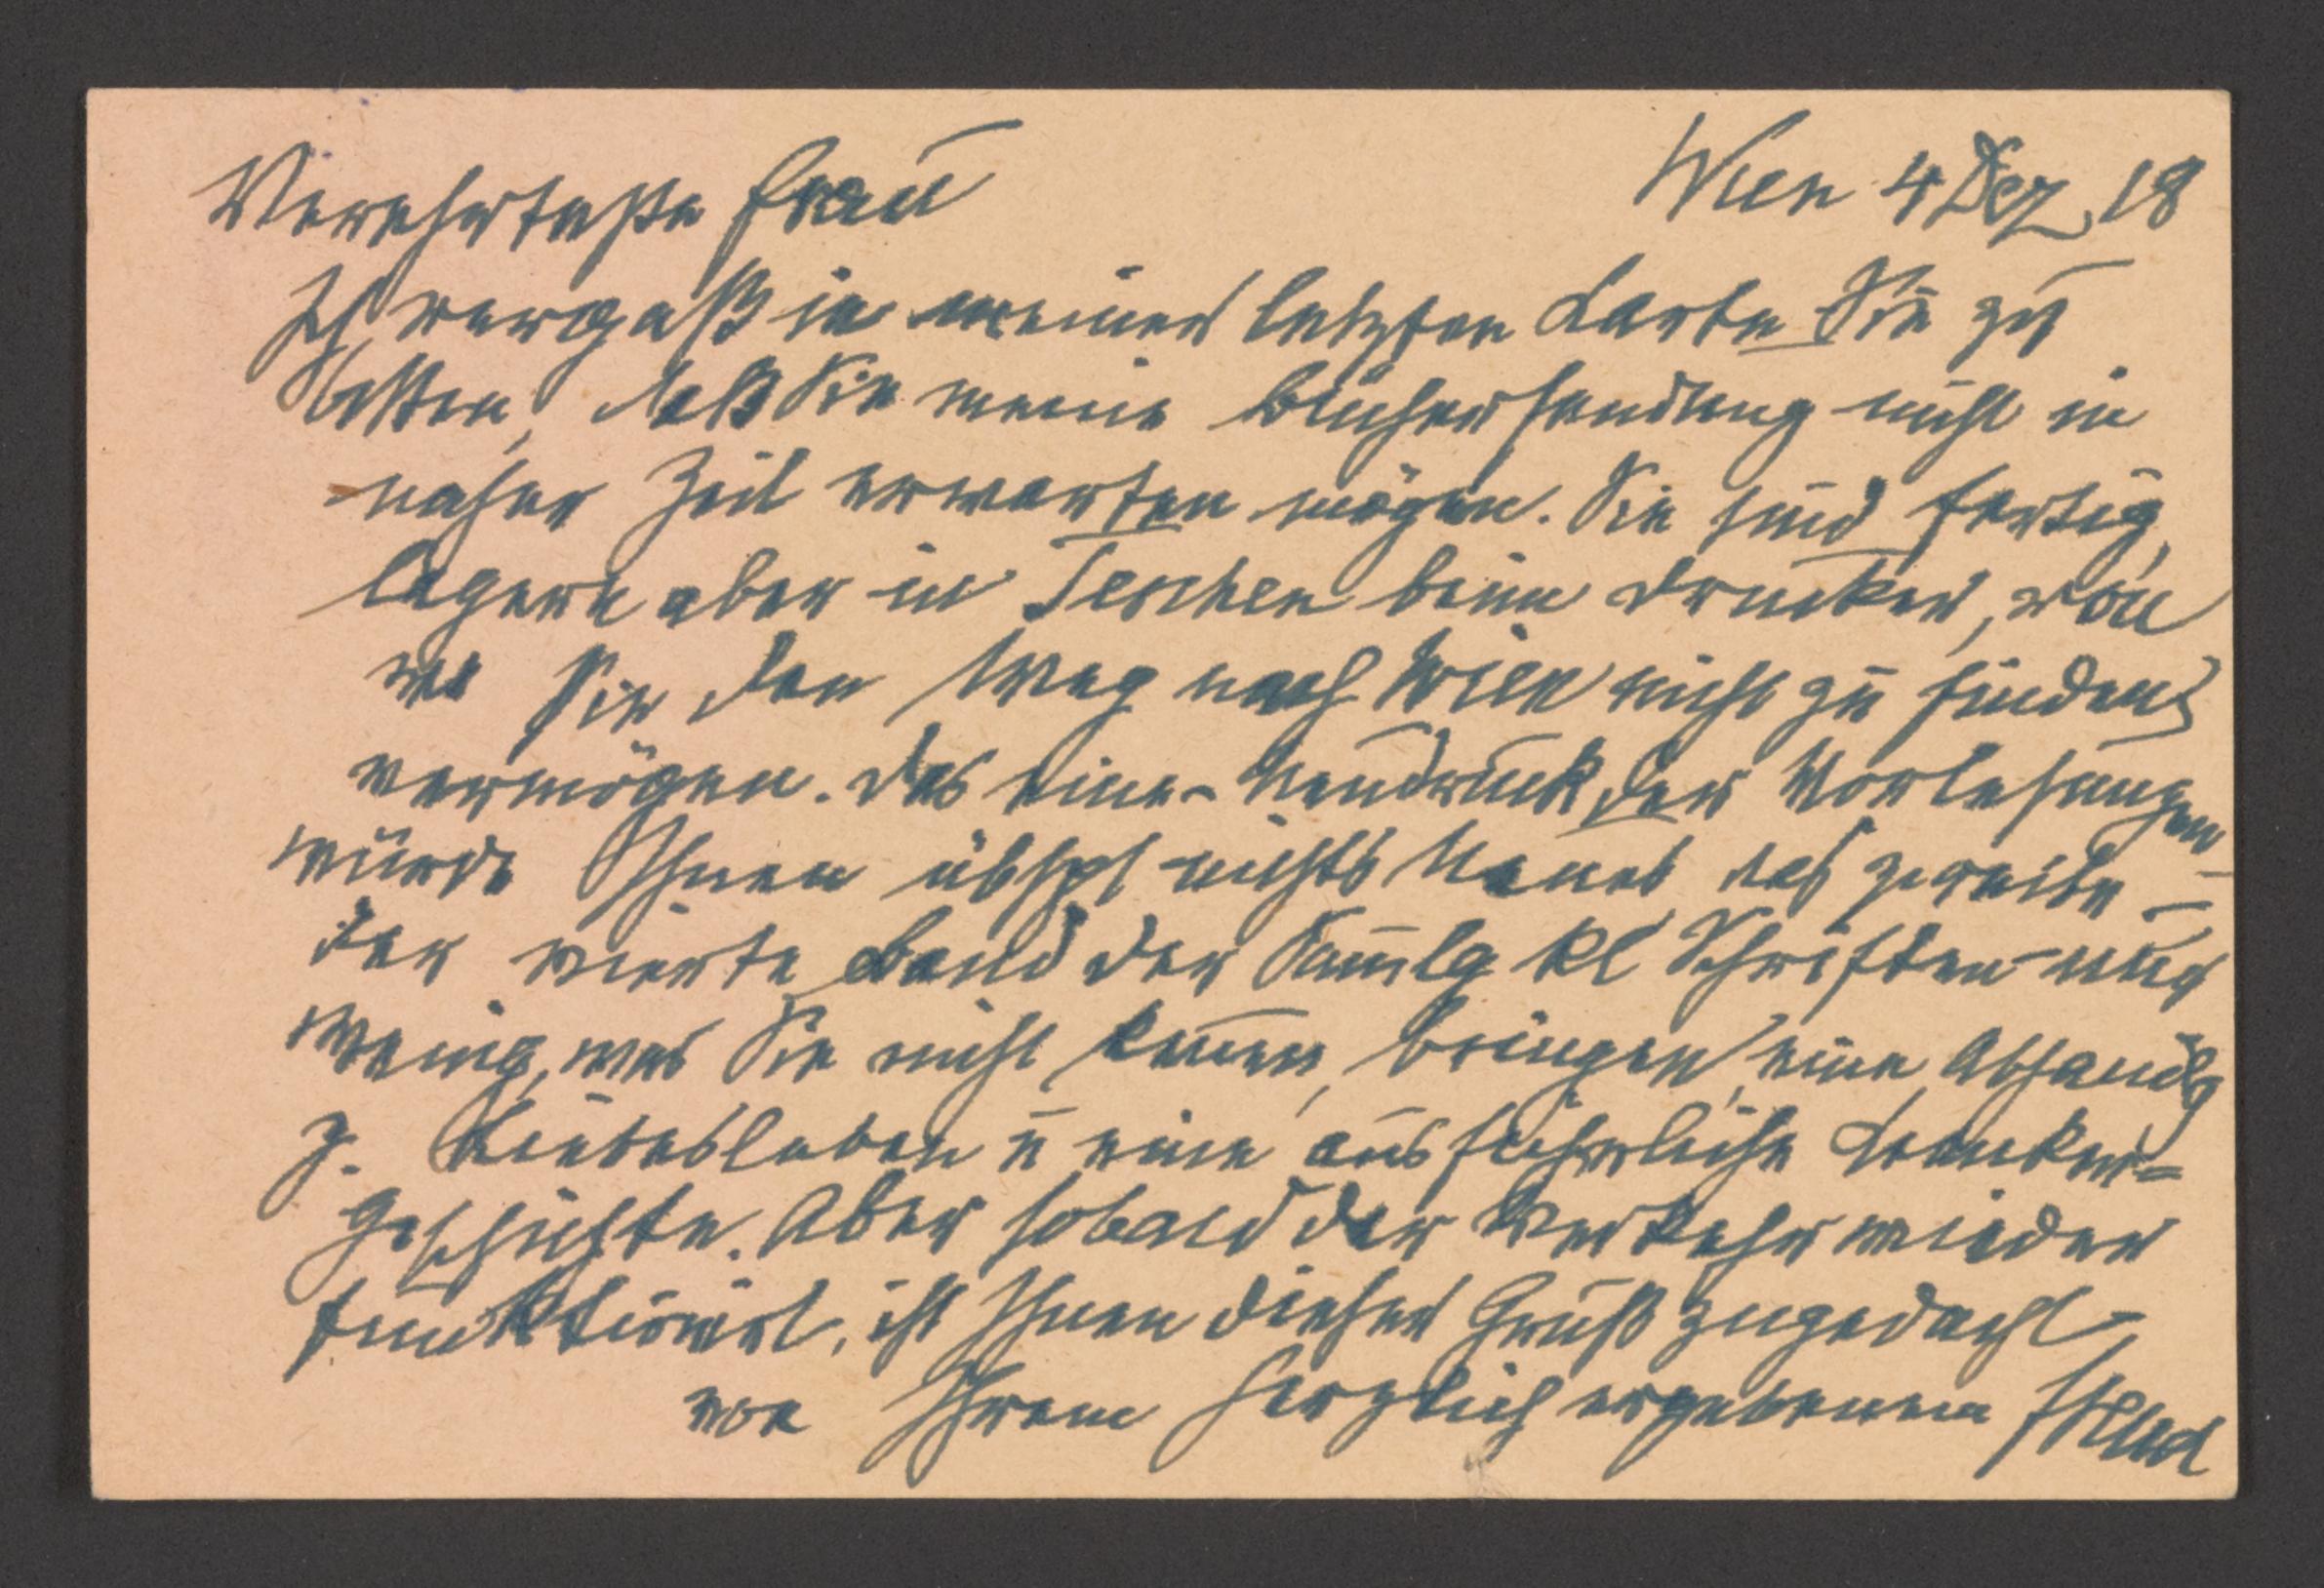 Wien 4 Dez 18
Verehrteste Frau
Ich vergaß in meiner letzten Karte Sie zu
bitten, daß Sie meine Büchersendung nicht in
naher Zeit erwarten mögen. Sie sind fertig,
lagern aber in Teschen beim Drucker, von
wo sie den Weg nach Wien nicht zu finden
vermögen. Das eine - Neudruck der Vorlesungen -
würde Ihnen übhpt nichts Neues, das zweite -
der vierte Band der Sammlg kl Schriften - nur
wenig, was Sie nicht kennen, bringen, eine Abhandlg
z. Liebesleben u eine ausführliche Kranken=
geschichte. Aber sobald der Verkehr wieder
funktionirt, ist Ihnen dieser Gruß zugedacht,
von Ihrem herzlich ergebenen Freud